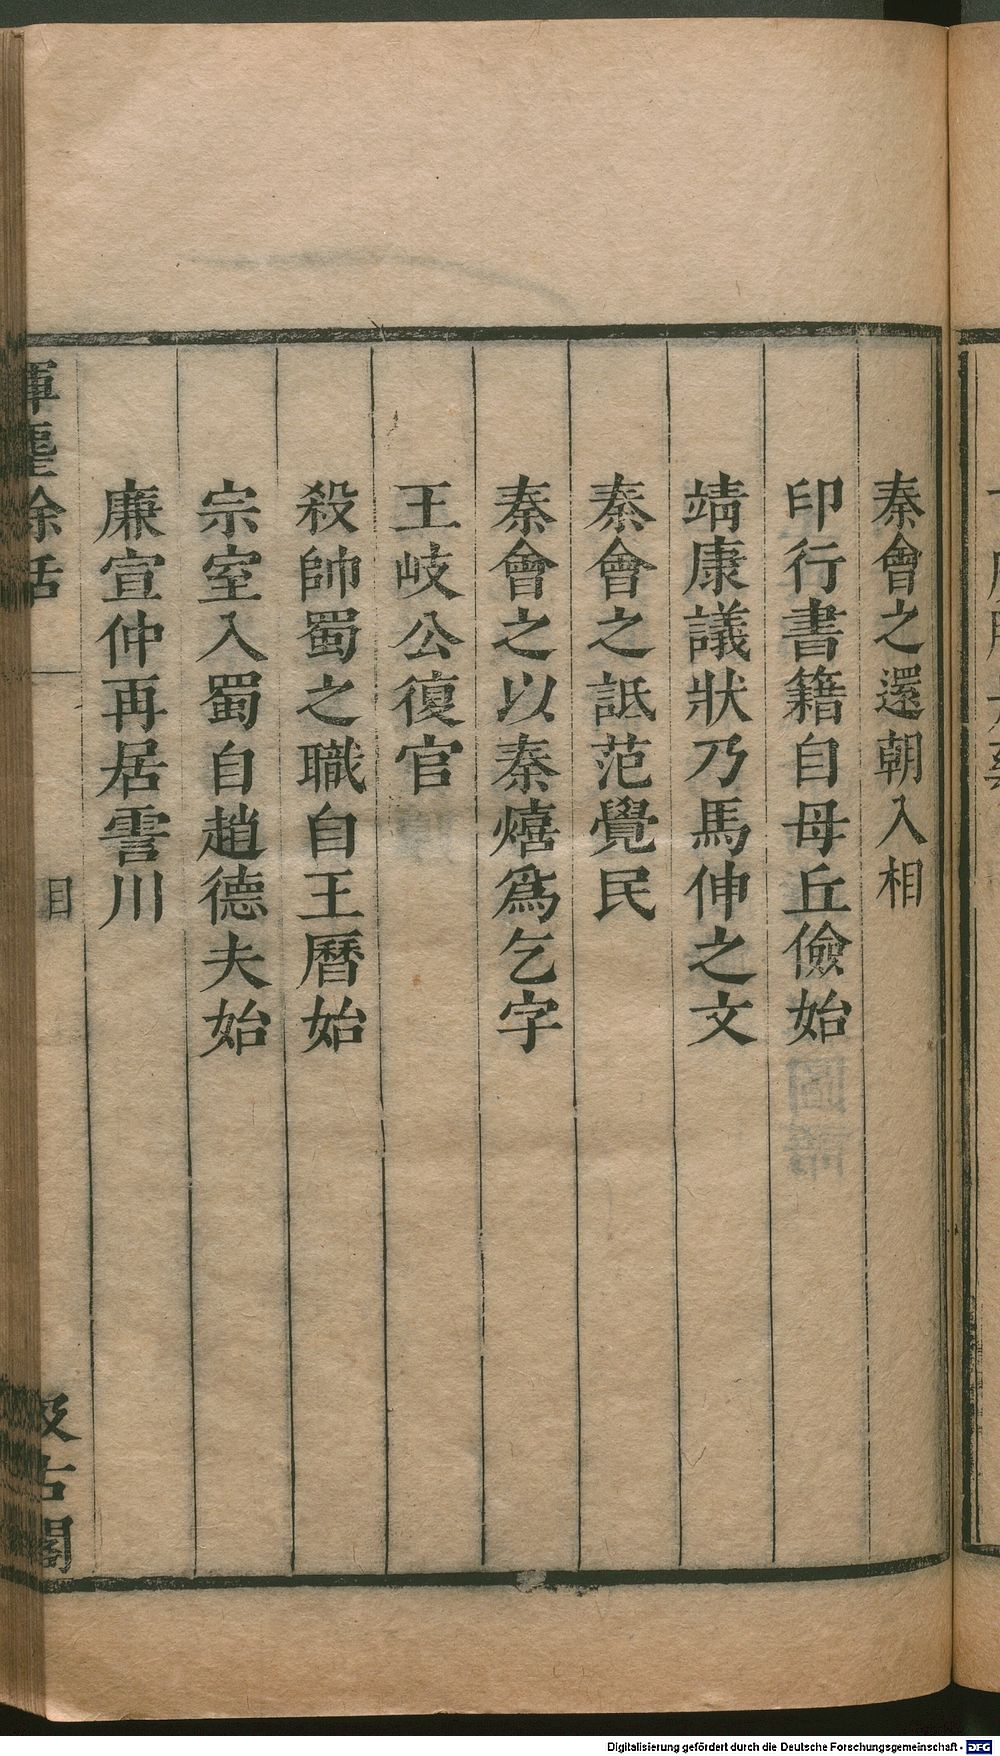 秦會之還朝入相
印行書籍自母丘儉始
靖康議狀乃馬伸之文
秦會之詆范覺民
秦會之以秦熺爲乞字
王岐公復官
殺帥蜀之職自王曆始
宗室入蜀自趙德夫始
廉宣仲再居霅川
揮麈餘話
目
汲古閣
Digitalisierung gefördert durch die Deutsche Forschungsgemeinschaft - DFG